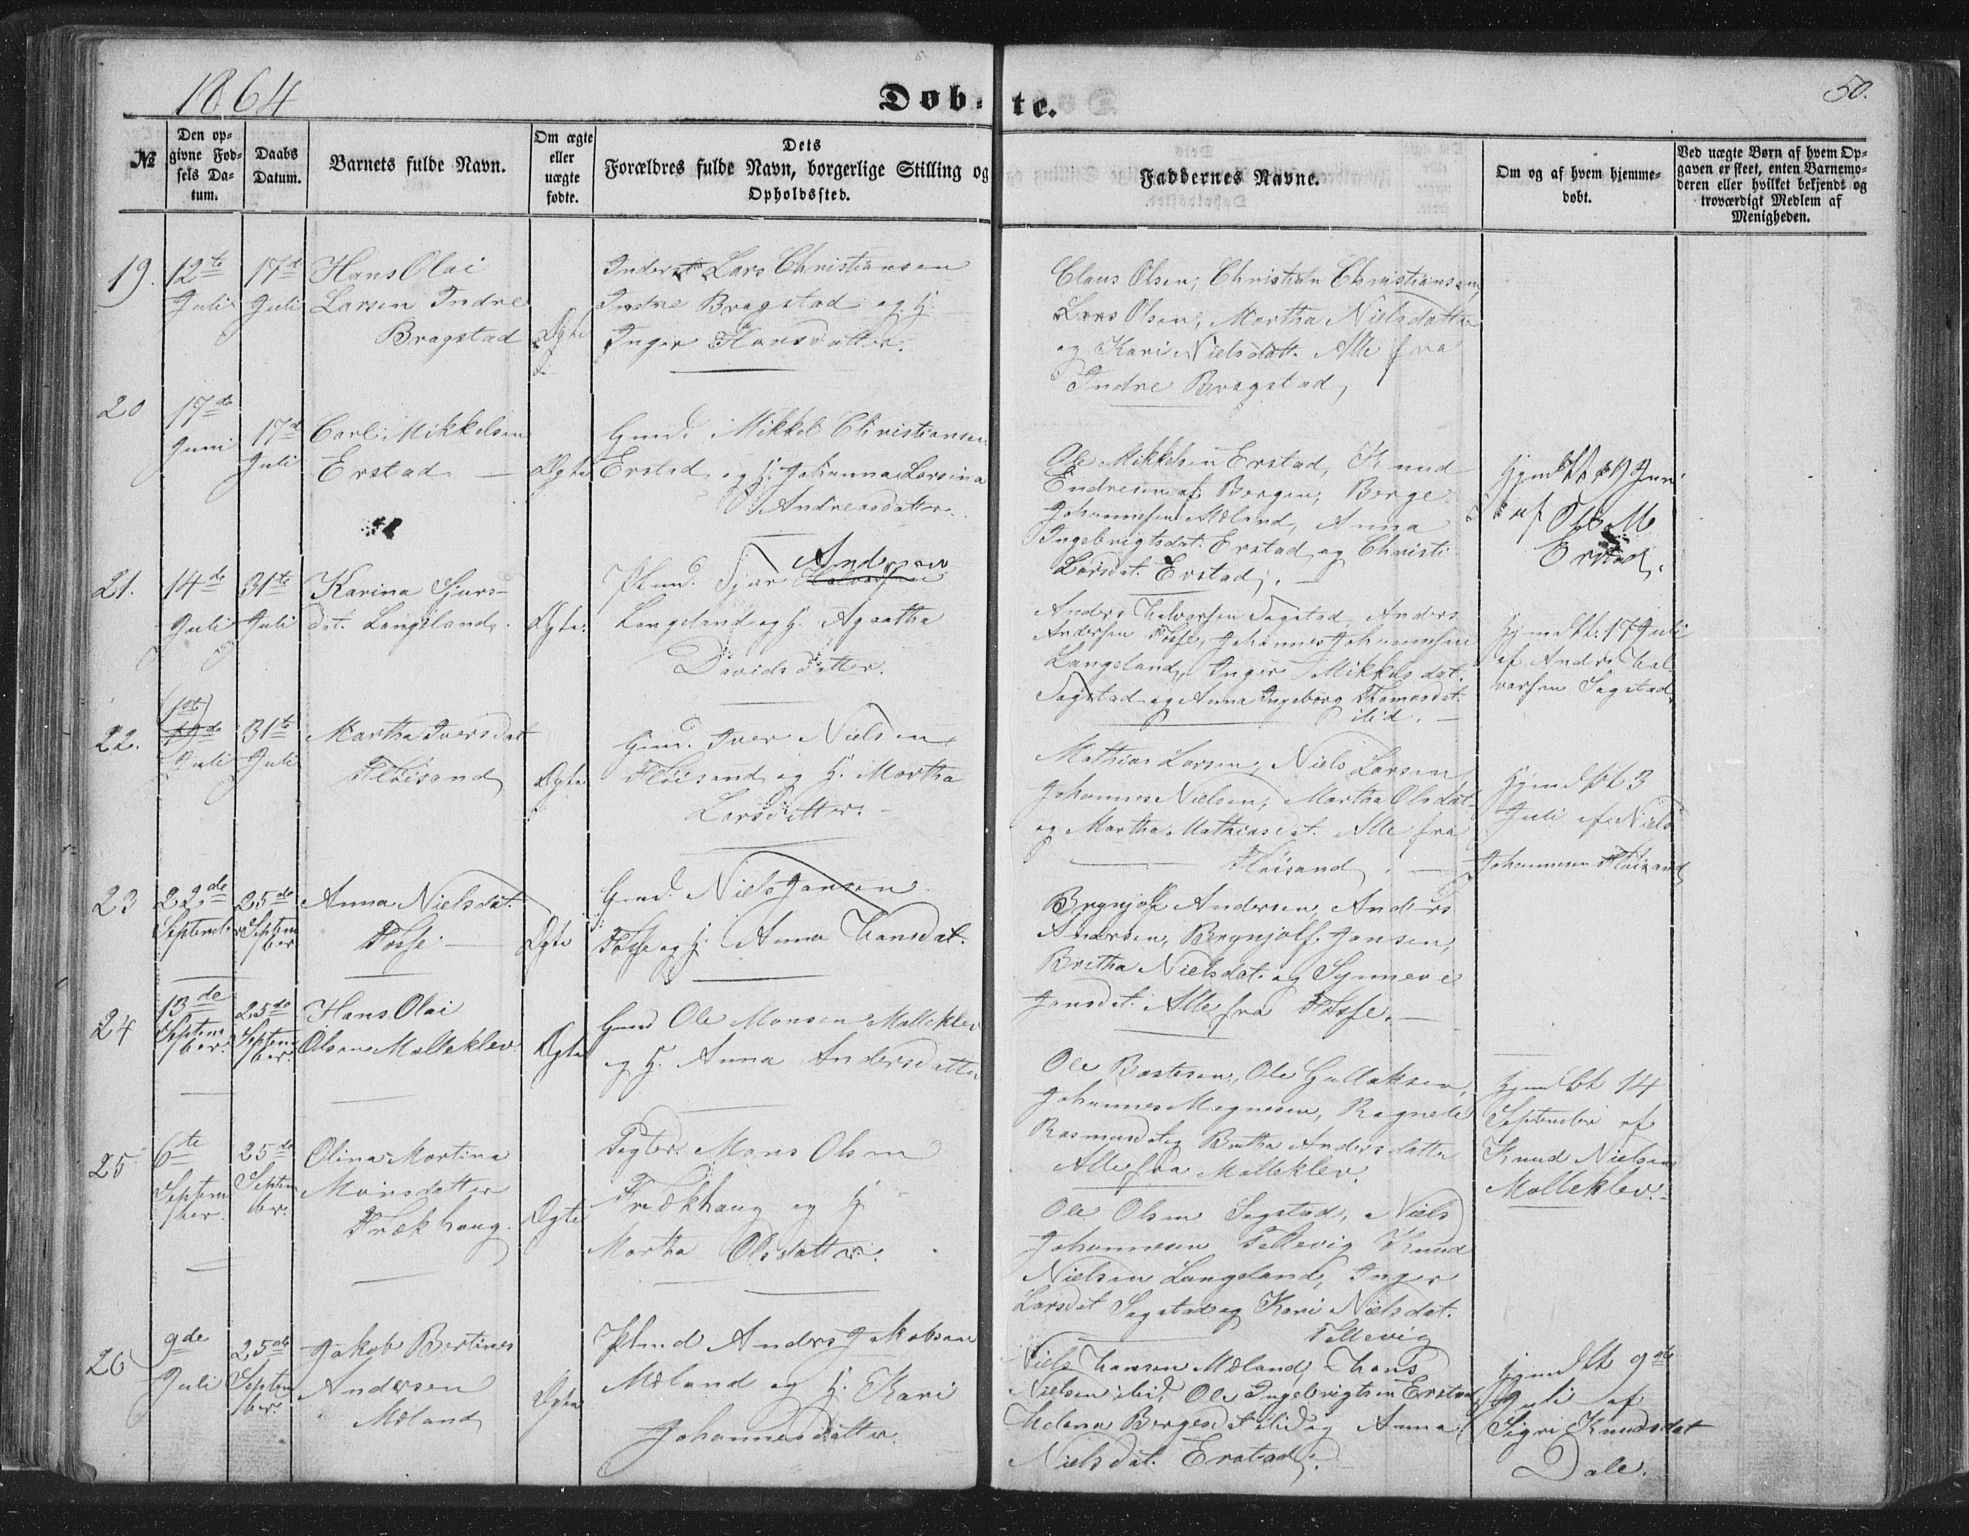 1864
Døb-te.
50.
№
Den op-
givne Fød-
sels Da-
tum.
Daabs
Datum.
Barnets fulde Navn.
Om ægte
eller
uægte
fødte.
Dets
Forældres fulde Navn, borgerlige Stilling og
Opholdssted.
Faddernes Navne.
Om og af hvem hjemme-
døbt.
Ved uægte Børn af hvem Op-
gaven er skeet, enten Barnemo-
deren eller hvilket bekjendt og
troværdigt Medlem af
Menigheden.
19.
12te
Juli
17de
Juli
Hans Olai
Larsen Indre
Bragstad
Ægte
Inderst Lars Christiansen
Indre Bragstad og H.
Inger Hansdatter.
Claus Olsen, Christian Christiansen,
Lars Olsen, Martha Nielsdatter
og Kari Nielsdatt. Alle fra
Indre Bragstad,
20
17de
Juni
17de
Juli
Carl Mikkelsen
Erstad
Ægte
Gmd. Mikkel Christiansen
Erstad og H. Johanna Larsina
Andreasdatter.
Ole Mikkelsen Erstad, Knud
Endresen af Bergen, Berge
Johannesen Mæland, Anna
Ingebrigtsdat. Erstad og Christi
Larsdat. Erstad.
Hjmdbt 19 Juni
af Ole M
Erstad.
21.
14de
Juli
31te
Juli
Karina Sjurs-
dat. Langeland.
Ægte.
Plmd. Sjur Halvorsen Andersen
Langeland og H. Agaatha
Davidsdatter.
Anders Halvorsen Sagstad, Anders
Andersen Fosse, Johannes Johannesen
Langeland, Inger Mikkelsdat.
Sagstad og Anna Ingeborg Thomasdat.
ibid.
Hjmdbt. 17 Juli
af Anders Hal
vorsen Sagstad
22.
1ste
Juli
31te
Juli
Martha Iversdat
Fløisand
Ægte
Gmd. Iver Nielsen
Fløisand og H. Martha
Larsdatter.
Mathias Larsen, Niels Larsen,
Johannes Nielsen, Martha Olsdat.
og Martha Mathiasdat. Alle fra
Fløisand.
Hjmdbt 3
Juli af Niels
Johannesen Fløisand
23
22de
September
25de
Septem
ber.
Anna Nielsdat.
Fosse
Ægte
Gmd. Niels Jansen
Fosse og H. Anna Hansdat.
Brynjolf Andersen, Anders
Andersen, Brynjolf Jansen,
Britha Nielsdat. og Synneve
Jansdat. Alle fra Fosse.
24
13de
Septem
ber.
25de
Septem
ber.
Hans Olai
Olsen Molleklev
Ægte
Gmd Ole Monsen Molleklev
og H. Anna Andersdatter
Ole Bastesen, Ole Gullaksen,
Johannes Magnesen, Ragnele
Rasmusdat og Britha Andersdatter
Alle fra Molleklev.
Hjmdbt 14
September af
Knud Nielsen
Molleklev.
25
6te
Septem
ber.
25de
Septem
ber.
Olina Martina
Monsdatter
Trækhaug.
Ægte
Mons Olsen
Trækhaug og H
Martha Olsdatter.
Ole Olsen Sagstad, Niels
Johannesen Tellevig Knud
Nielsen Langeland, Inger
Larsdat Sagstad og Kari Nielsdat.
Tellevig
26
9de
Juli
25de
Septem
ber.
Jakob Bertines
Andersen
Mæland
Ægte
Plmd Anders Jakobsen
Mæland og H. Kari
Johannesdatter.
Niels Hansen Mæland, Hans
Nielsen ibid Ole Ingebrigtsen Erstad
Helena Bergesdat ibid og Anna
Nielsdat. Erstad.
Hjmdbt 9de
Juli af
Sigri Knudsdat
Dale.